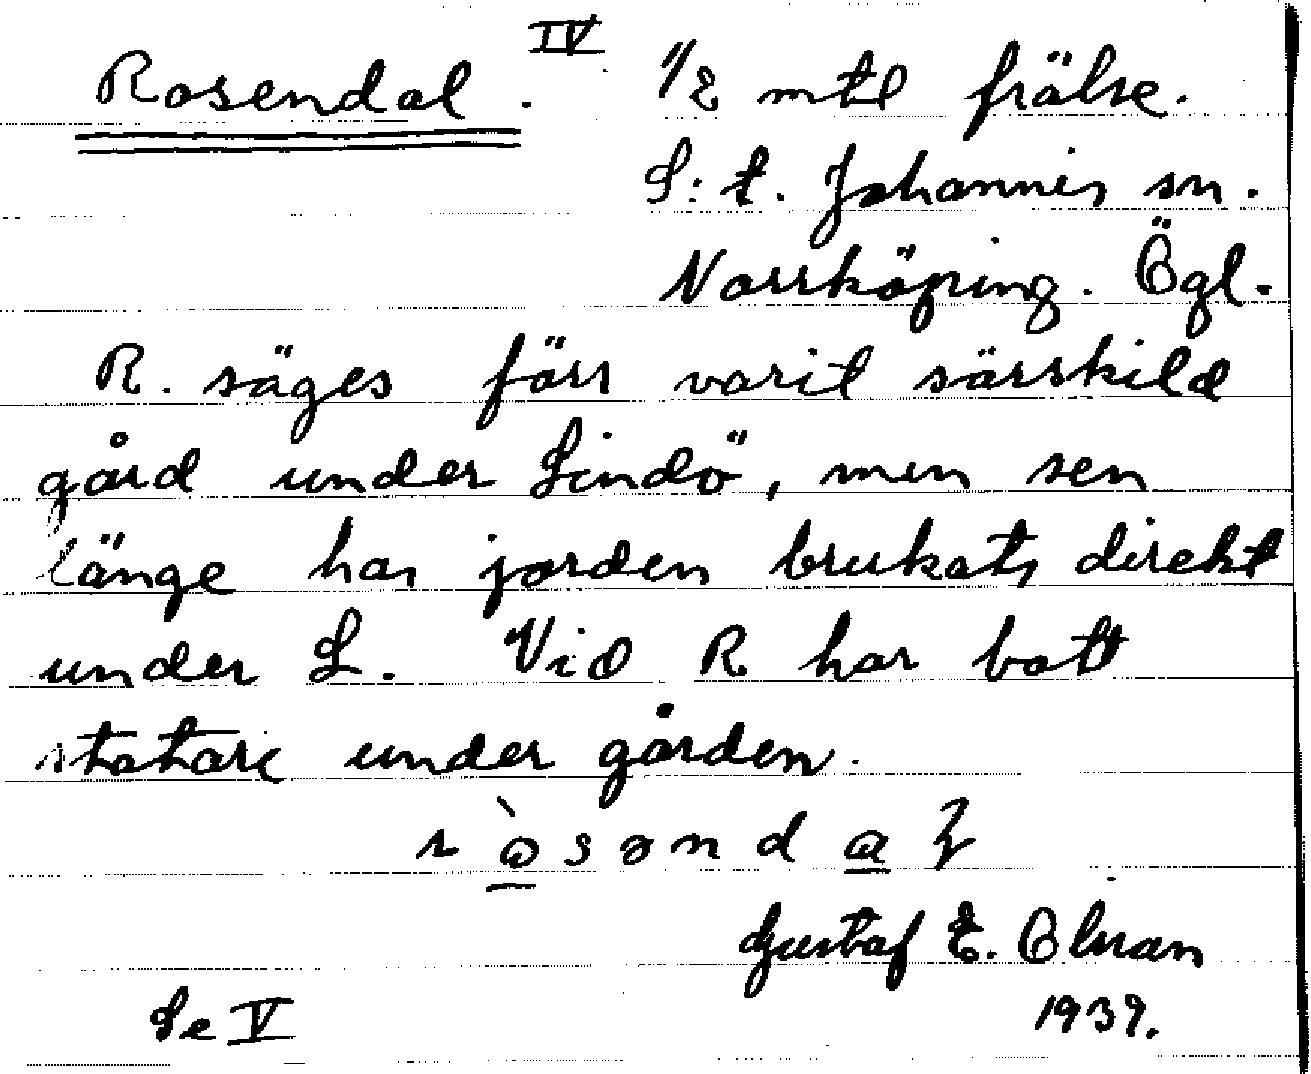 Rosendal. IV 1/2 mtl frälse.
S:t. Johannis sn.
Norrköping. Ögl.
R. säges förr varit särskild
gård under Lindö, men sen
länge har jorden brukats direkt
under L. Vid R har bott
statare under gården.
Gustaf E. Olsson
Se V 1939.